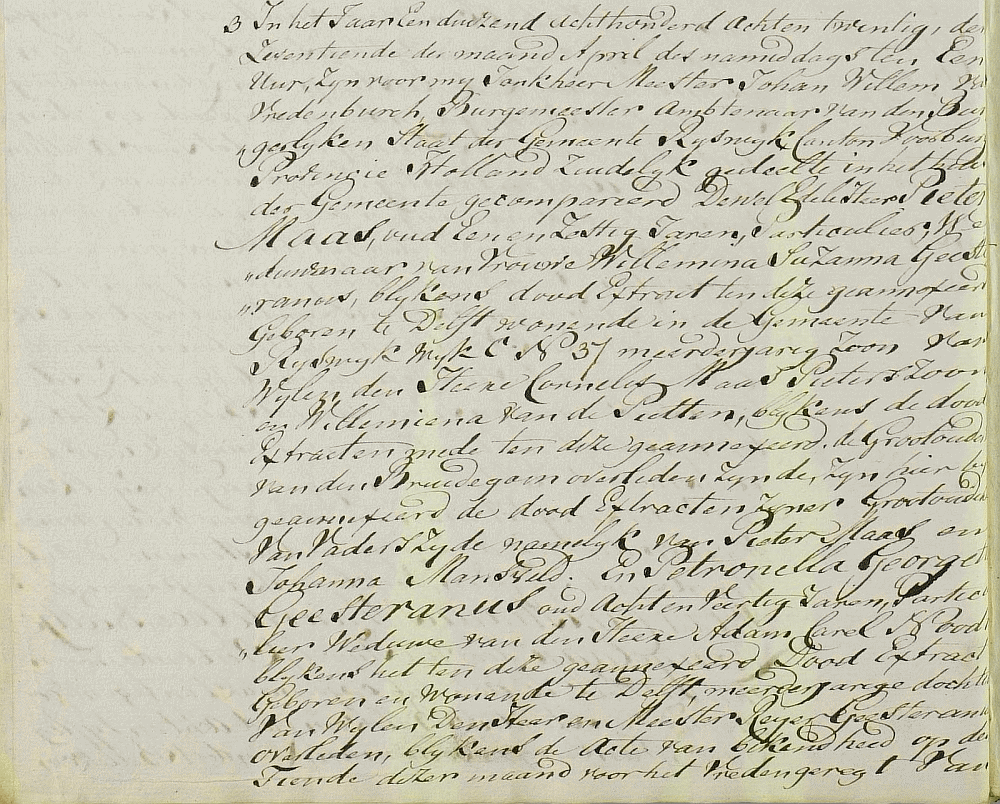 3 In het Jaar Een duizend achthonderd Achten twintig, de
Zeventiende der maand April des namiddags ten Een
Uur, Zyn voor my Jonkheer Meester Johan Willem V
Vredenburch, Burgemeester Ambtenaar van den Bur
„gerlyken Staat der Gemeente Ryswyk Canton Voorbur
Provincie Holland Zuidelyk gedeelte in het
der Gemeente gecompareerd Den Wel Edele Heer Pieter
Maas, oud Een en Zestig Jaren, Particulier, We
„duwenaar van Vrouwe Willemina Suzanna Geeste
„ranus, blykens dood Extract ten deze geannexeer
Geboren te Delft wonende in de Gemeente van
Ryswyk Wyk C No 37 meerderjarig Zoon van
Wylen den Heere Cornelis Maas Pieterszoon
en Willemiena van de Putten, blykens de dood
Extracten mede ten deze geannexeerd. de Grootoude
van den Bruidegom overleden Zynde, Zyn hier by
geannexeerd de dood Extracten Zyner Grootoude
Van Vaders Zyde namelyk van Pieter Maas en
Johanna Mansveld. En Petronella George
Geesteranus oud Acht en Veertig Jaren, Particu
„lier Weduwe van den Heere Adam Carel
blykens het ten deze geannexeerd Dood Extrac
Geboren en Wonende te Delft meerderjarige docht
Van Wylen Den Heer en Meester Reyer Geesteran
overleden, blykens de Acte van bekendheid op de
Tiende dezer maand voor het Vredengeregt Van